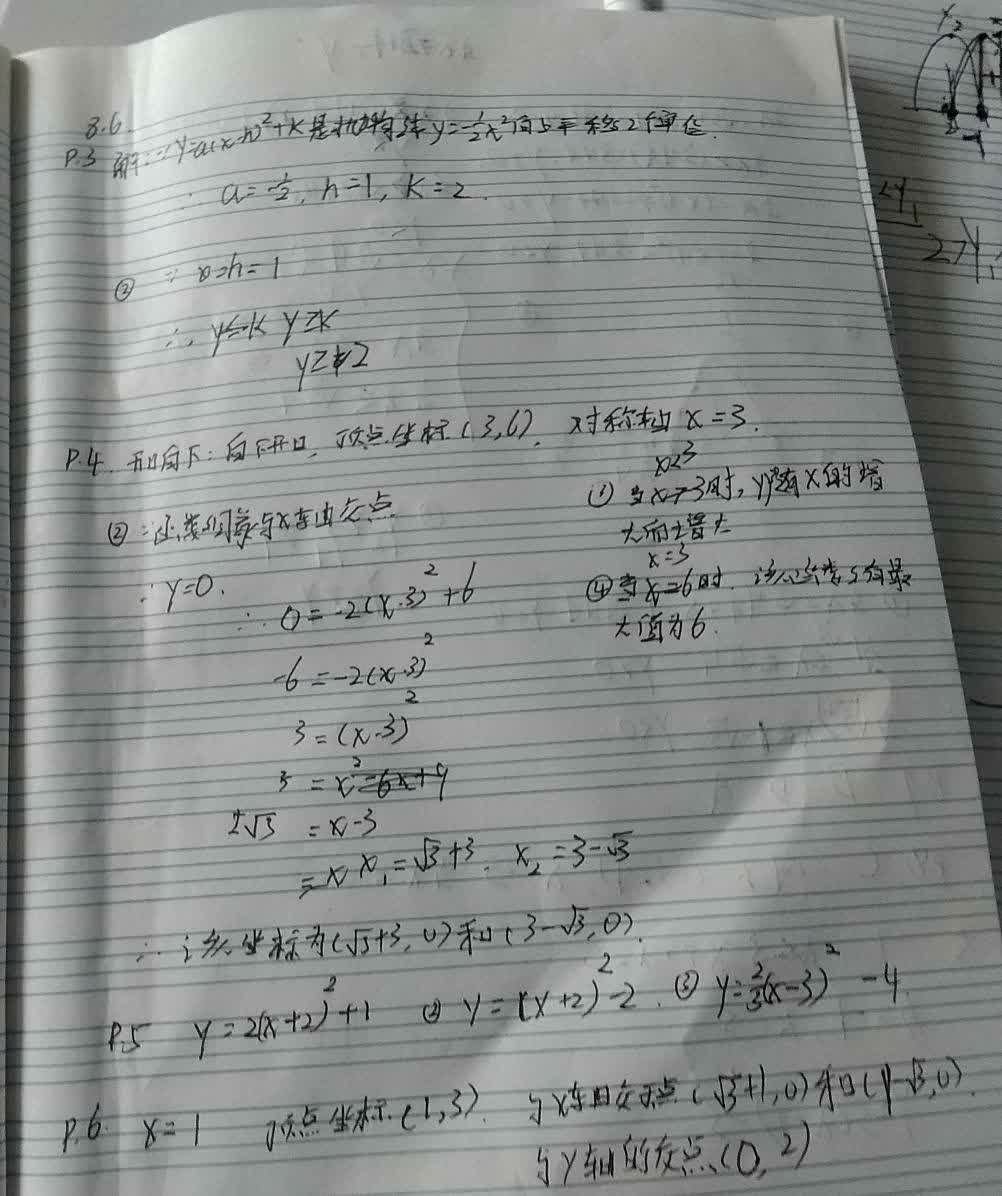 3.6
P.3 解:∵y=a(x-h)²+k是抛物线y=-½x²向上平移2个单位.
a=-½, h=1, k=2.
② ∵x=h=1
∴ y≤k y≥k
y≥2
P.4 开口向下:向下开口, 顶点坐标(3,6), 对称轴 x=3.
② ∵函数图象与x轴由交点
∵y=0.
∴ 0=-2(x-3)²+6
-6=-2(x-3)²
3=(x-3)²
3=x²-6x+9
±√3=x-3
=x x₁=√3+3. x₂=3-√3
∴该坐标为(√3+3,0)和(3-√3,0).
x<3
① 当x>3时, y随x的增
大而增大
x=3
④当x=6时. 该函数有最
大值为6.
P.5 y=2(x+2)²+1 ② y=(x+2)²-2. ③ y=⅔(x-3)²-4
P.6. x=1 顶点坐标(1,3). 与x轴由交点(√3+1,0)和(1-√3,0).
与y轴的交点(0,2)